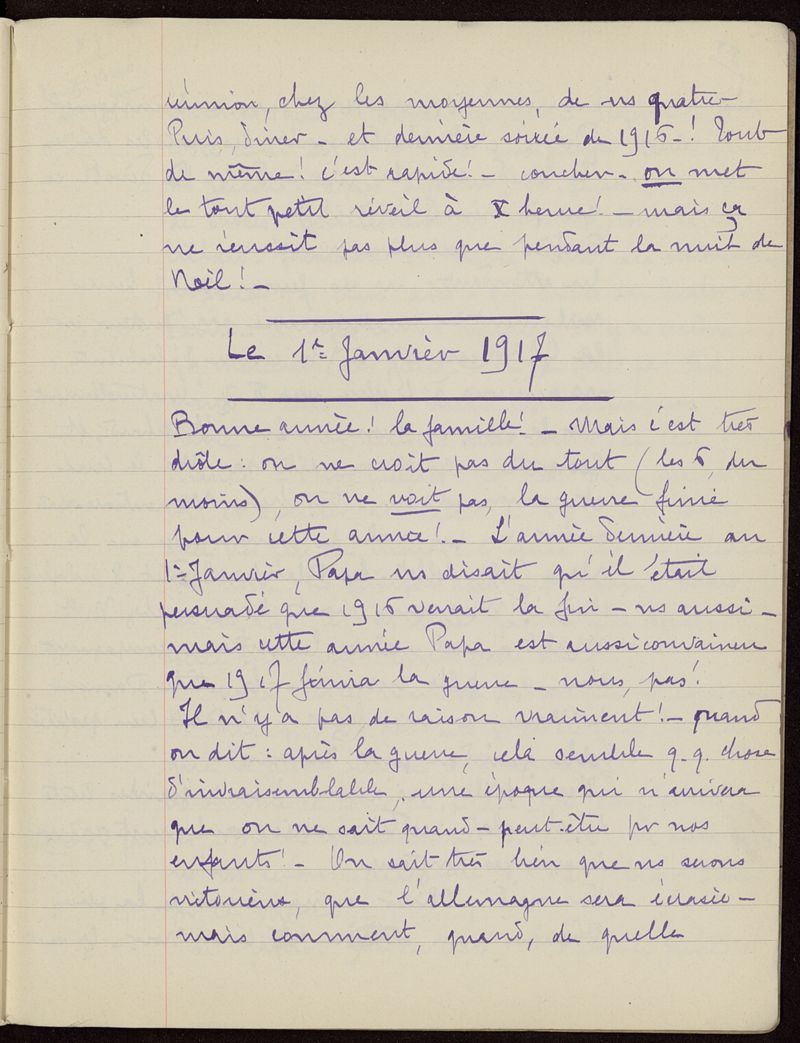 réunion, chez les moyennes, de ns quatre -
Puis, dîner - et dernière soirée de 1916 - ! Tout
de même ! c'est rapide ! - coucher - on met
le tout petit réveil à X heure ! - mais ça
ne réussit pas plus que pendant la nuit de
Noël ! -
Le 1er Janvier 1917
Bonne année ! la famille ! - Mais c'est très
drôle : on ne croit pas du tout (les 6, du
moins), on ne voit pas, la guerre finie
pour cette année ! - L'année dernière au
1er Janvier, Papa ns disait qu'il était
persuadé que 1916 verrait la fin - ns aussi -
mais cette année Papa est aussi convaincu
que 1917 finira la guerre - nous, pas !
Il n'y a pas de raison vraiment ! - quand
on dit : après la guerre, cela semble q.q. chose
d'invraisemblable, une époque qui n'arrivera
que on ne sait quand - peut-être pr nos
enfants ! - On sait très bien que ns serons
victorieux, que l'allemagne sera écrasée -
mais comment, quand, de quelle